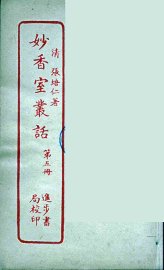 清 張培仁著
妙香室叢話
第五冊
進步書
局校印